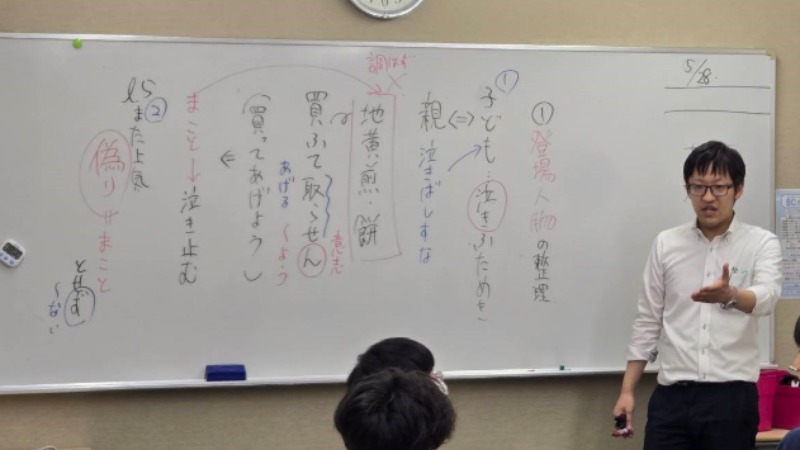 5/28.
① 登場人物の整理
①
子ども:泣きふためき
⇔
親 泣きばしすな
地黄煎・餅
買ふて取らせん
あげる 〜よう
意志
(買ってあげよう)
⇐
まこと→泣き止む
②
また上気
偽り⇔まこと
とせず
〜ない